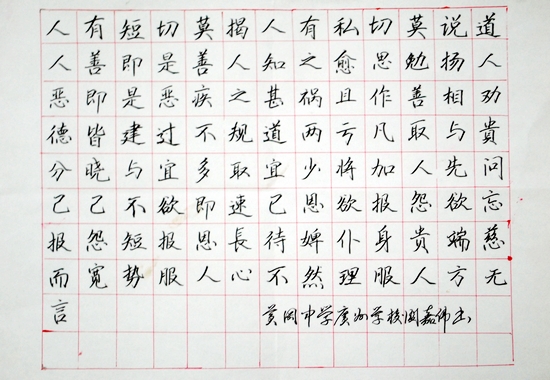 人有短切莫揭人有私切莫说道
人善即是善人知之愈思勉扬人
恶即是恶疾之甚祸且作善相劝
德皆建过不规道两亏凡取与贵
分晓与宜多取宜少将加人先问
己己不欲即速已恩欲报怨欲忘
报怨短报恩長待婢仆身贵端慈
而宽势服人心不然理服人方无
言
黄冈中学广州学校嘉伟书